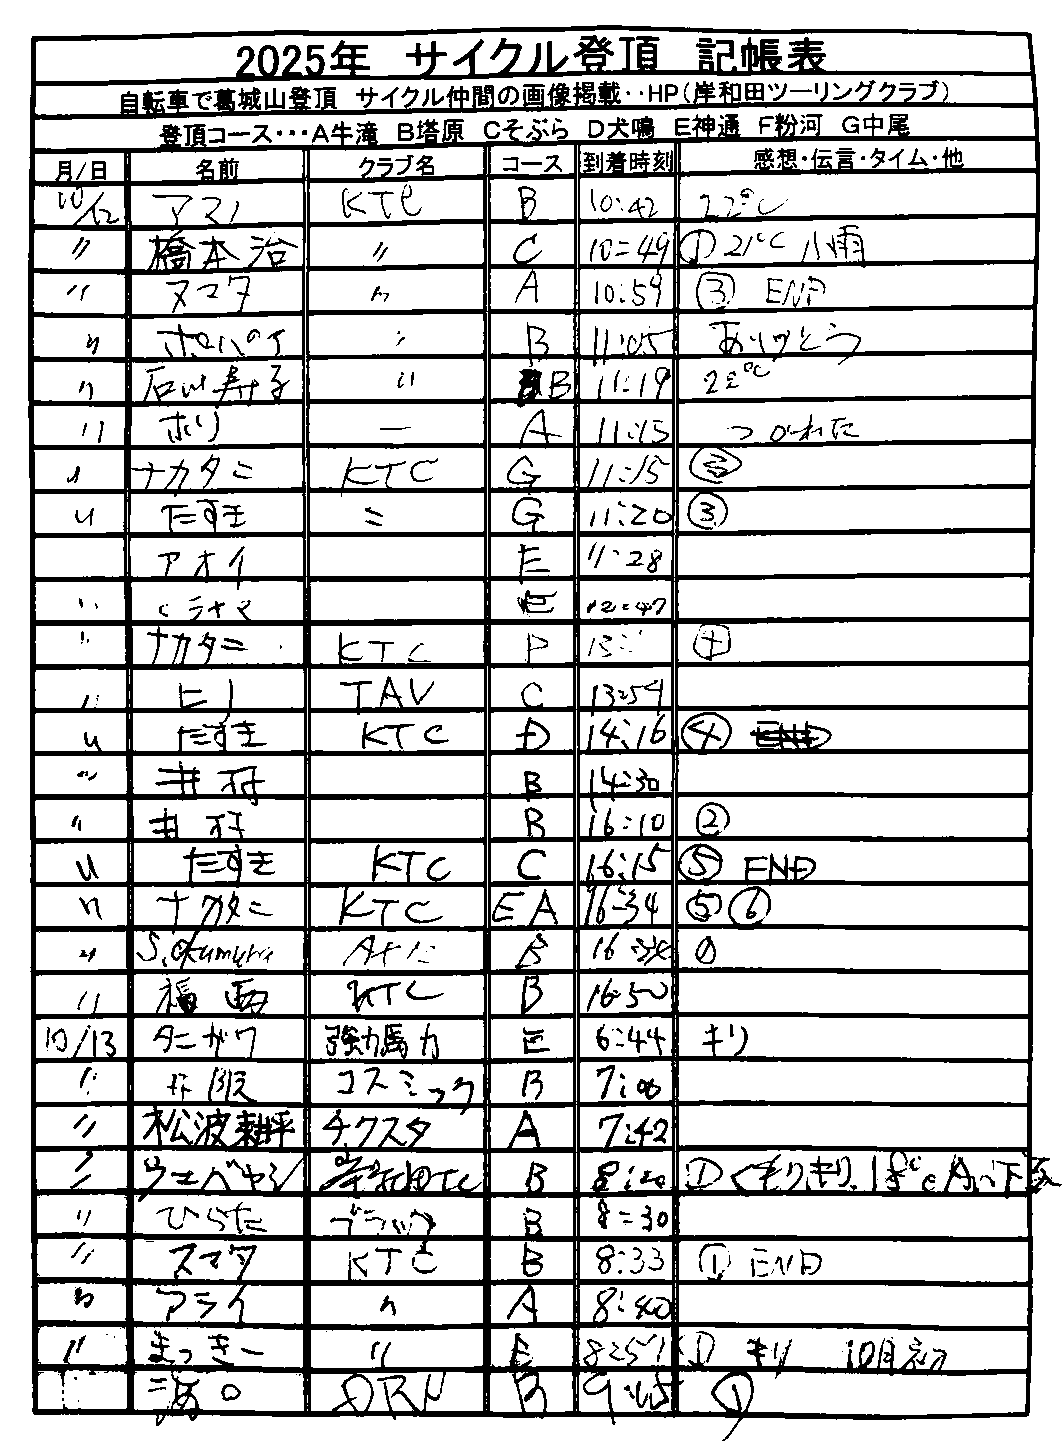 2025年 サイクル登頂 記帳表
自転車で葛城山登頂 サイクル仲間の画像掲載‥HP(岸和田ツーリングクラブ)
登頂コース･･･A牛滝 B塔原 Cそぶら D犬鳴 E神通 F粉河 G中尾
月/日 名前 クラブ名 コース 到着時刻 感想・伝言・タイム・他
10/12 アマノ KTC B 10:42 22℃
〃 橋本治 〃 C 10:49 ① 21℃ 小雨
〃 ヌマタ 〃 A 10:59 ③ END
〃 ポパイ 〃 B 11:05 ありがとう
〃 石川寿子 〃 B 11:19 22℃
〃 ホリ ー A 11:15 つかれた
〃 ナカタニ KTC G 11:15 ③
〃 たすき 〃 G 11:20 ③
アオイ E 11:28
〃 E 12:47
〃 ナカタニ KTC D 13: ④
〃 ヒノ TAV C 13:59
〃 たすき KTC D 14:16 ④ END
〃 井村 B 14:30
〃 井村 B 16:10 ②
〃 たすき KTC C 16:15 ⑤ END
〃 ナカタニ KTC E A 16:34 ⑤ ⑥
〃 S.Okumura B 16:34
〃 福西 KTC B 16:50
10/13 タニガワ 強力馬力 E 6:44 キリ
〃 コスミック B 7:00
〃 松波耕平 チクスタ A 7:42
〃 ウエベヤシ 岸和田TC B 8:20 ① くもり、キリ、
〃 ひらた ブラック B 8:30
〃 スマタ KTC B 8:33 ① END
〃 アライ 〃 A 8:40
〃 まっきー 〃 E 8:51 ① キリ 10月初
DRN B 9:45 ①